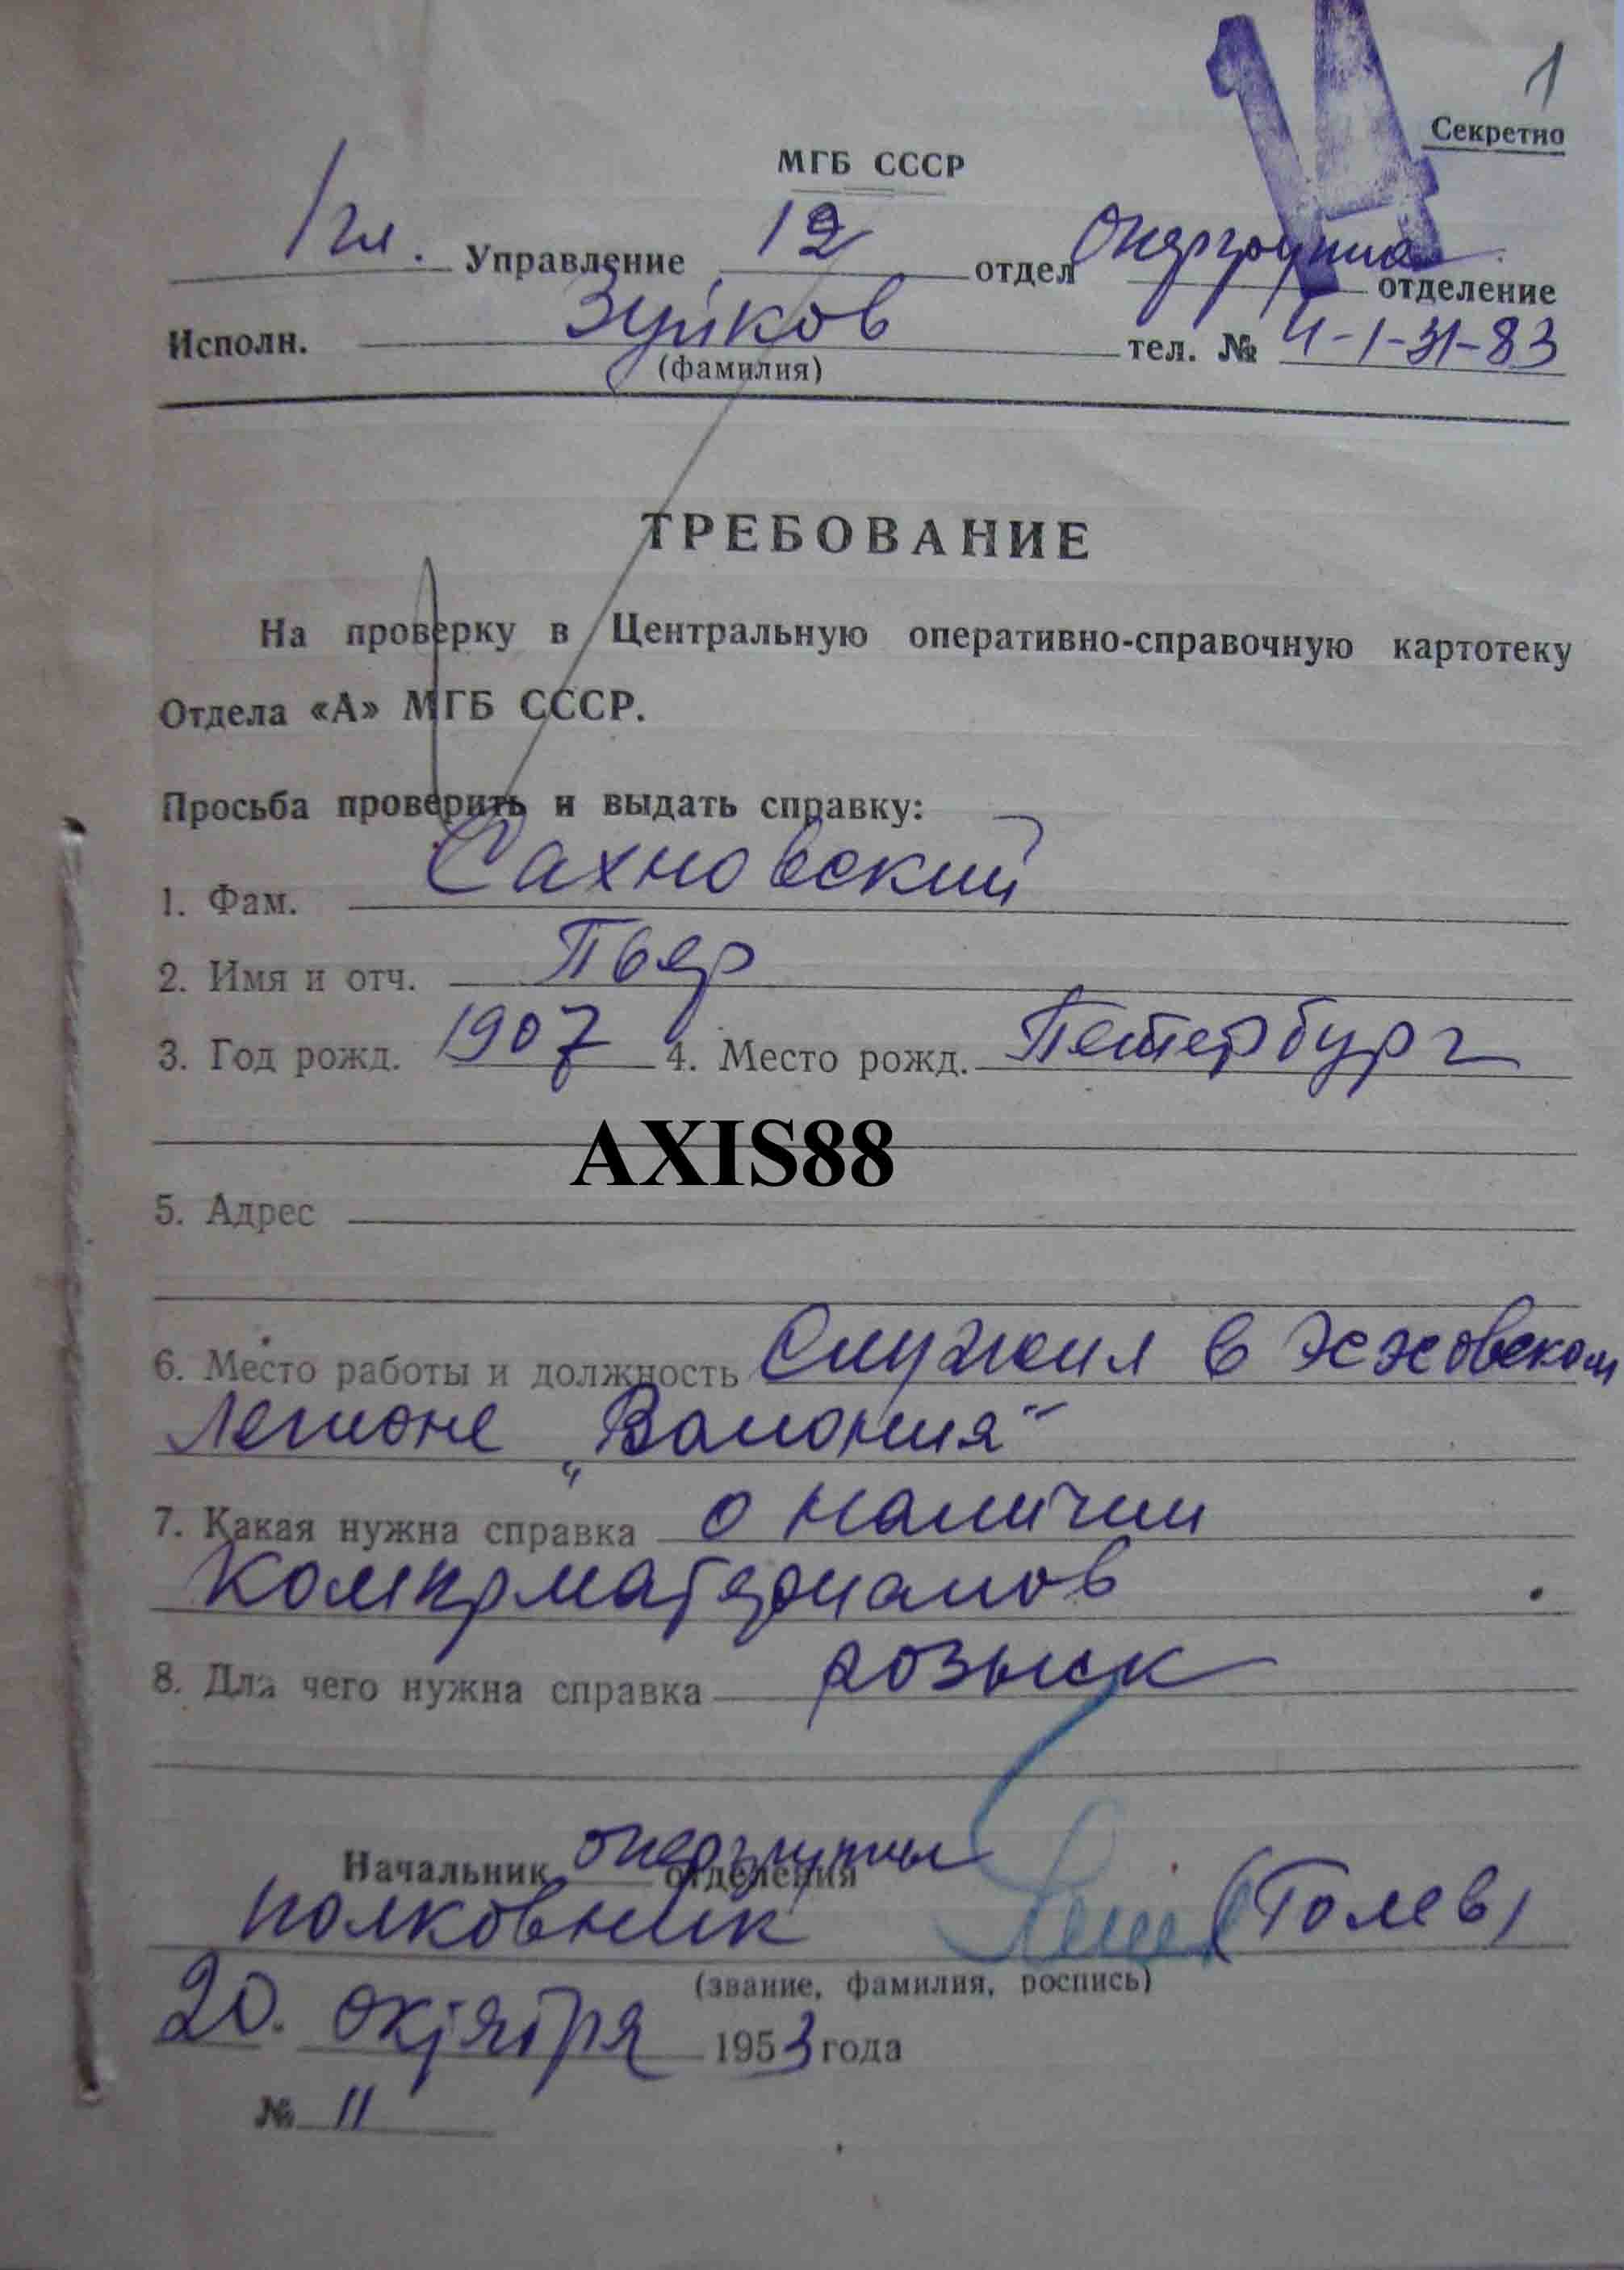 1
Секретно
МГБ СССР
1 гл. Управление 12 отдел Опергруппа отделение
Исполн. Зуйков тел. № 4-1-31-83
(фамилия)
ТРЕБОВАНИЕ
На проверку в Центральную оперативно-справочную картотеку
Отдела «А» МГБ СССР.
Просьба проверить и выдать справку:
1. Фам. Сахновский
2. Имя и отч. Пьер
3. Год рожд. 1907 4. Место рожд. Петербург
AXIS88
5. Адрес
6. Место работы и должность Служил в эсэсовском
легионе „Валония“
7. Какая нужна справка о наличии
компрматериалов
8. Для чего нужна справка розыск
Начальник опергруппы отделения
полковник (Голев)
(звание, фамилия, роспись)
20. октября 1953 года
№ 11